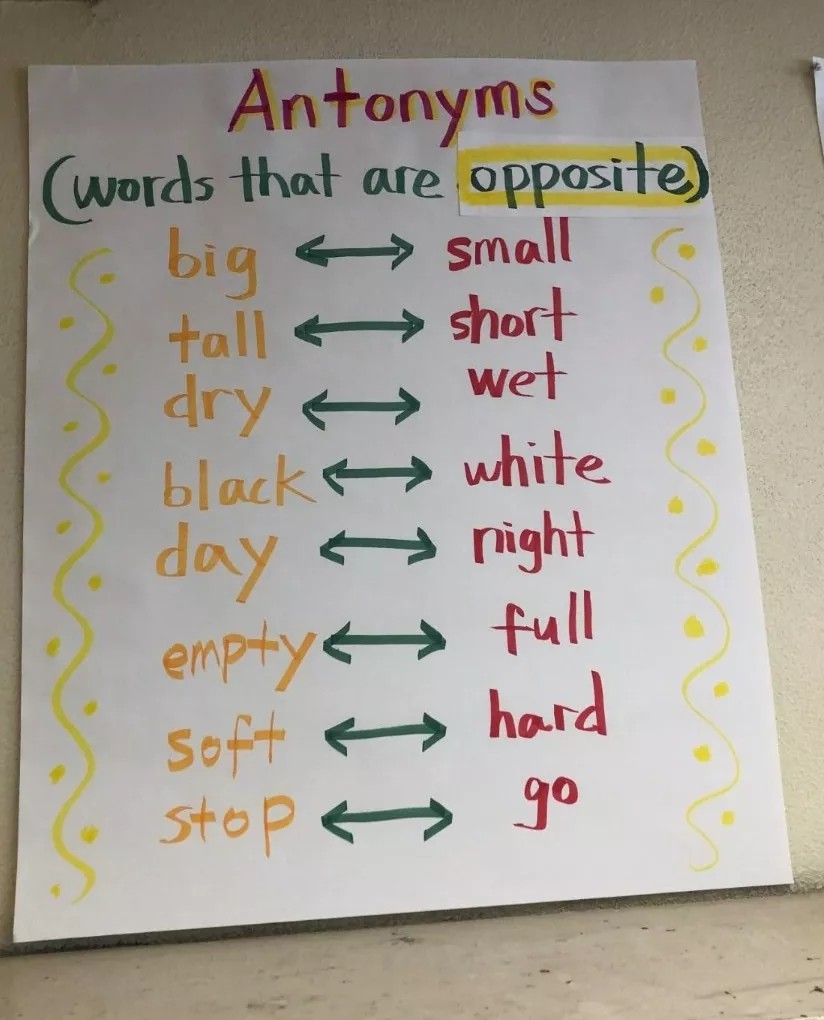 Antonyms
(words that are opposite)
big ↔ small
tall ↔ short
dry ↔ wet
black ↔ white
day ↔ night
empty ↔ full
soft ↔ hard
stop ↔ go